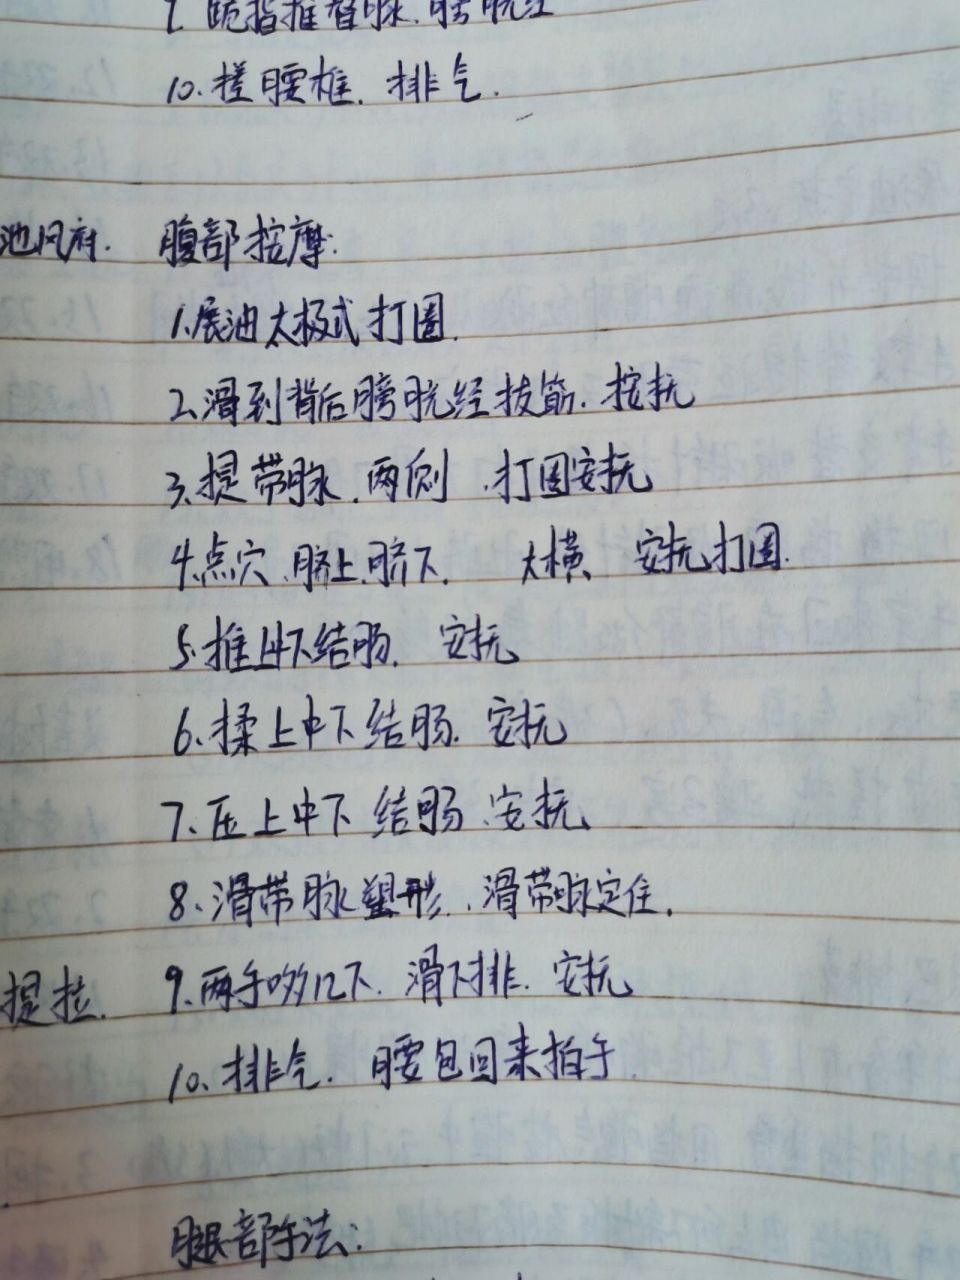 跪指推督脉.膀胱经
10.搓腰框.排气.
池风府.
腹部按摩:
1.展油太极式打圈.
2.滑到背后膀胱经拔筋.按抚
3.提带脉.两侧.打圈安抚
4.点穴.脐上.脐下.大横 安抚打圈.
5.推上中下结肠.安抚
6.揉上中下结肠.安抚
7.压上中下结肠.安抚
8.滑带脉塑形.滑带脉定住.
提拉.
9.两手哆几下.滑下排.安抚
10.排气.腰包回来拍手.
腿部手法: